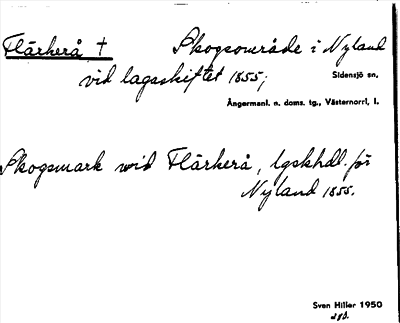 Flärkerå † Skogsområde i Nyland
vid lagaskiftet 1855;
Sidensjö sn.
Ångermanl. n. doms. tg., Västernorrl. l.
Skogsmark wid Flärkerå, lgskhdl. för
Nyland 1855.
Sven Hiller 1950